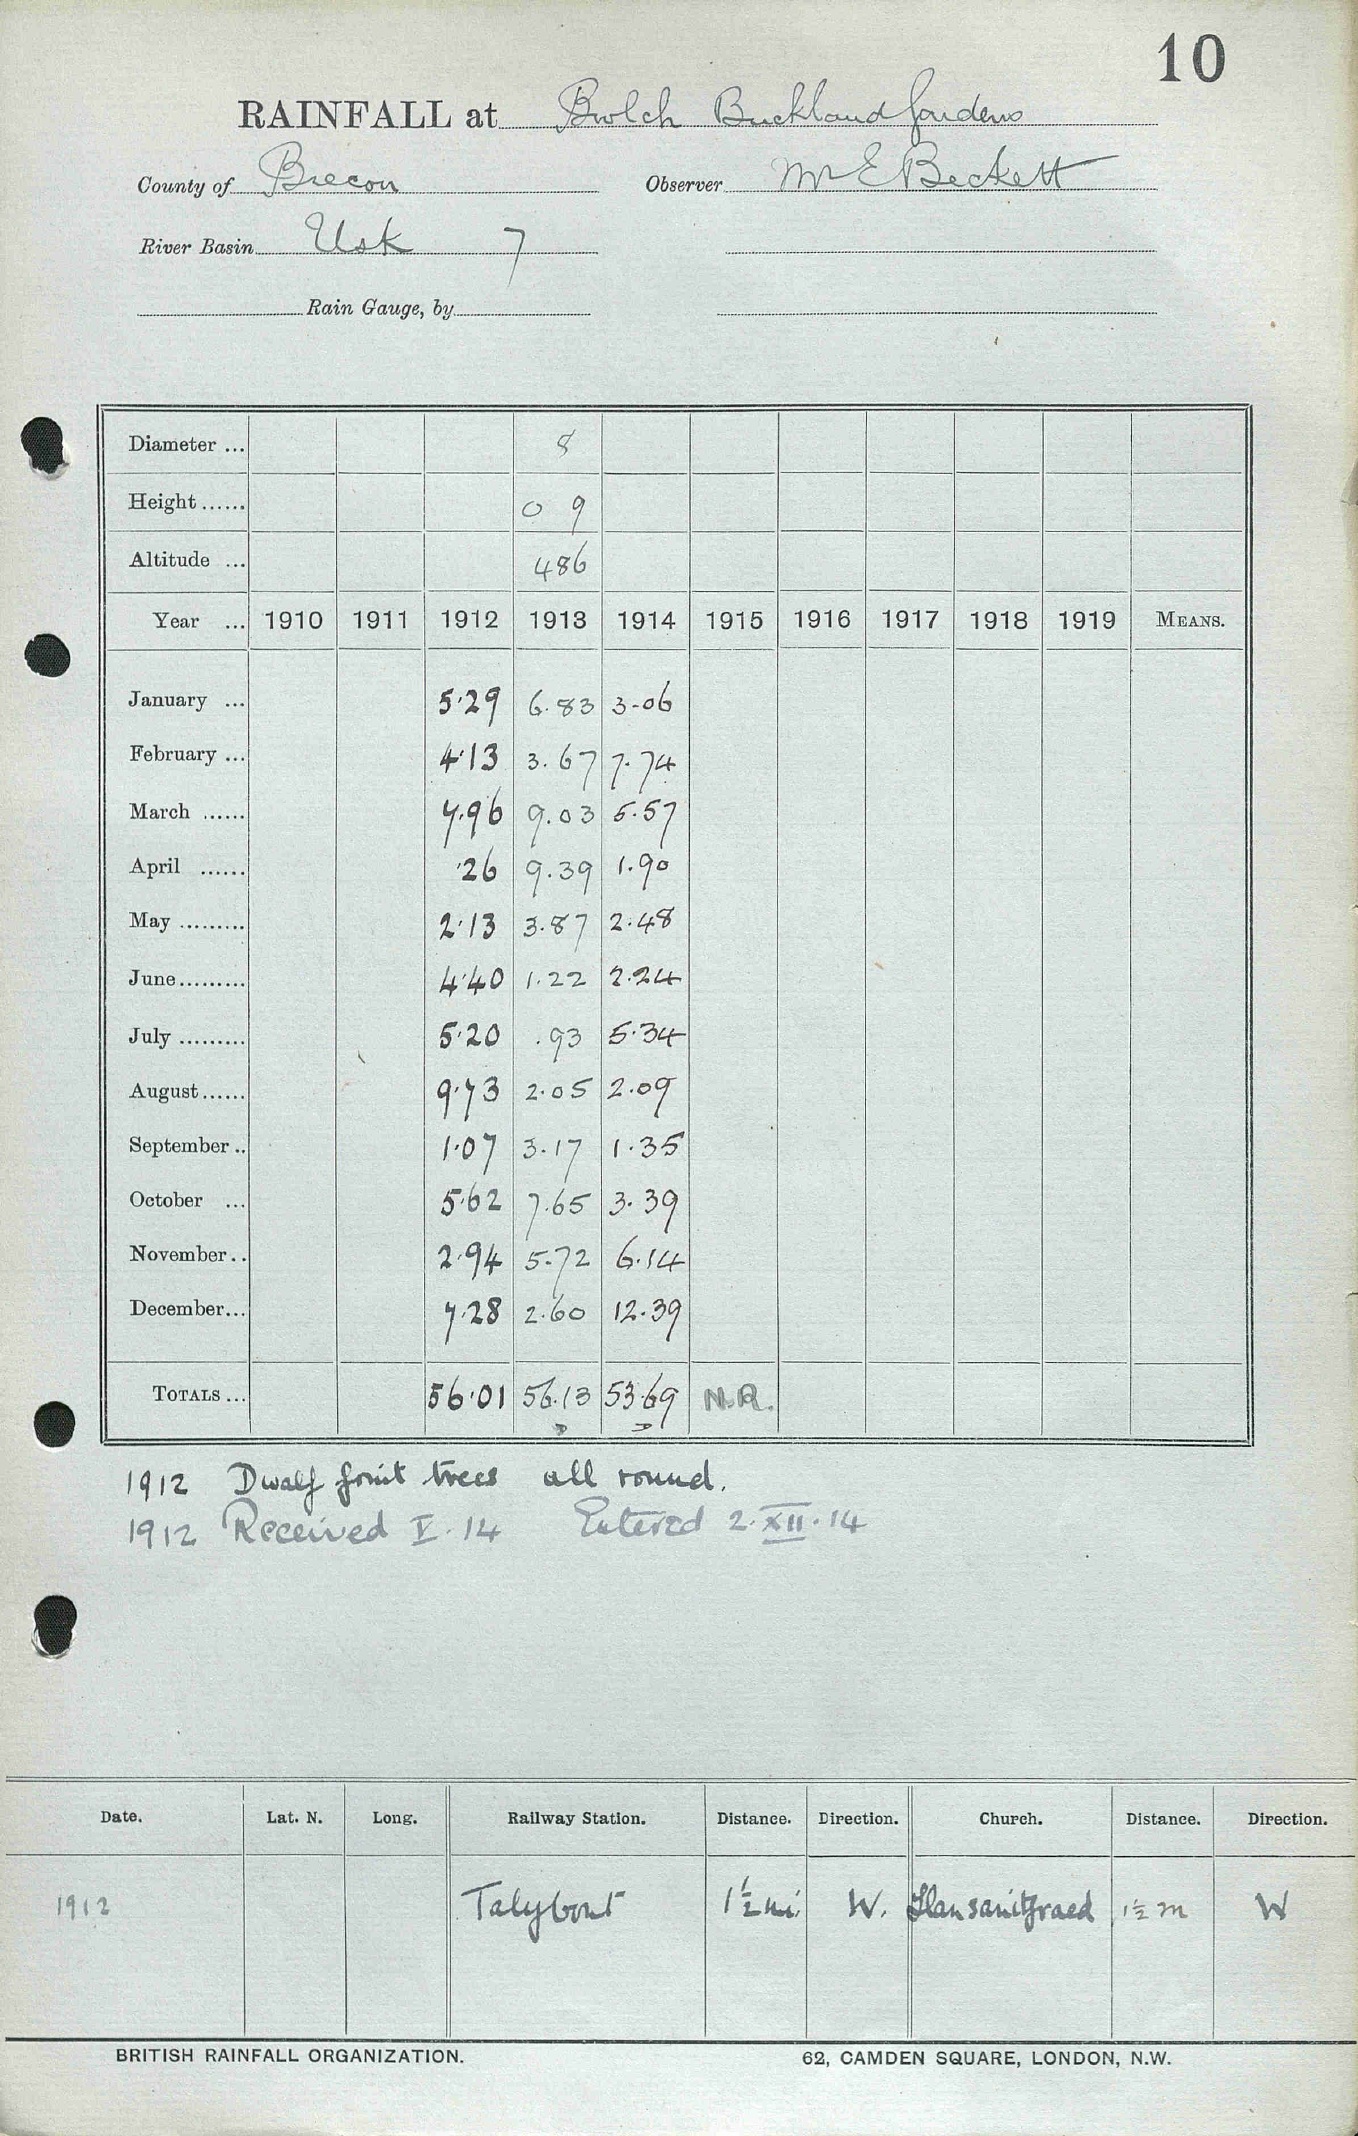 10
RAINFALL at Bwlch Buckland Gardens
County of Brecon Observer Mr E Beckett
River Basin Usk 7
Rain Gauge, by
Diameter ... 8
Height ...... 0 9
Altitude ... 486
Year ... 1910 1911 1912 1913 1914 1915 1916 1917 1918 1919 MEANS.
January ... 5·29 6.83 3.06
February ... 4·13 3.67 7.74
March ...... 7.96 9.03 5.57
April ...... ·26 9.39 1.90
May ......... 2·13 3.87 2.48
June ......... 4·40 1.22 2.24
July ......... 5·20 .93 5.34
August ...... 9·73 2.05 2.09
September .. 1·07 3.17 1.35
October ... 5·62 7.65 3.39
November .. 2.94 5.72 6.14
December ... 7.28 2.60 12.39
TOTALS ... 56·01 56.13 53.69 N.R.
D D
1912 Dwarf fruit trees all round.
1912 Received V.14 Entered 2.XII.14
Date. Lat. N. Long. Railway Station. Distance. Direction. Church. Distance. Direction.
1912 Talybont 1½ mi. W. Llansanitfraed 1½ m W
BRITISH RAINFALL ORGANIZATION. 62, CAMDEN SQUARE, LONDON, N.W.